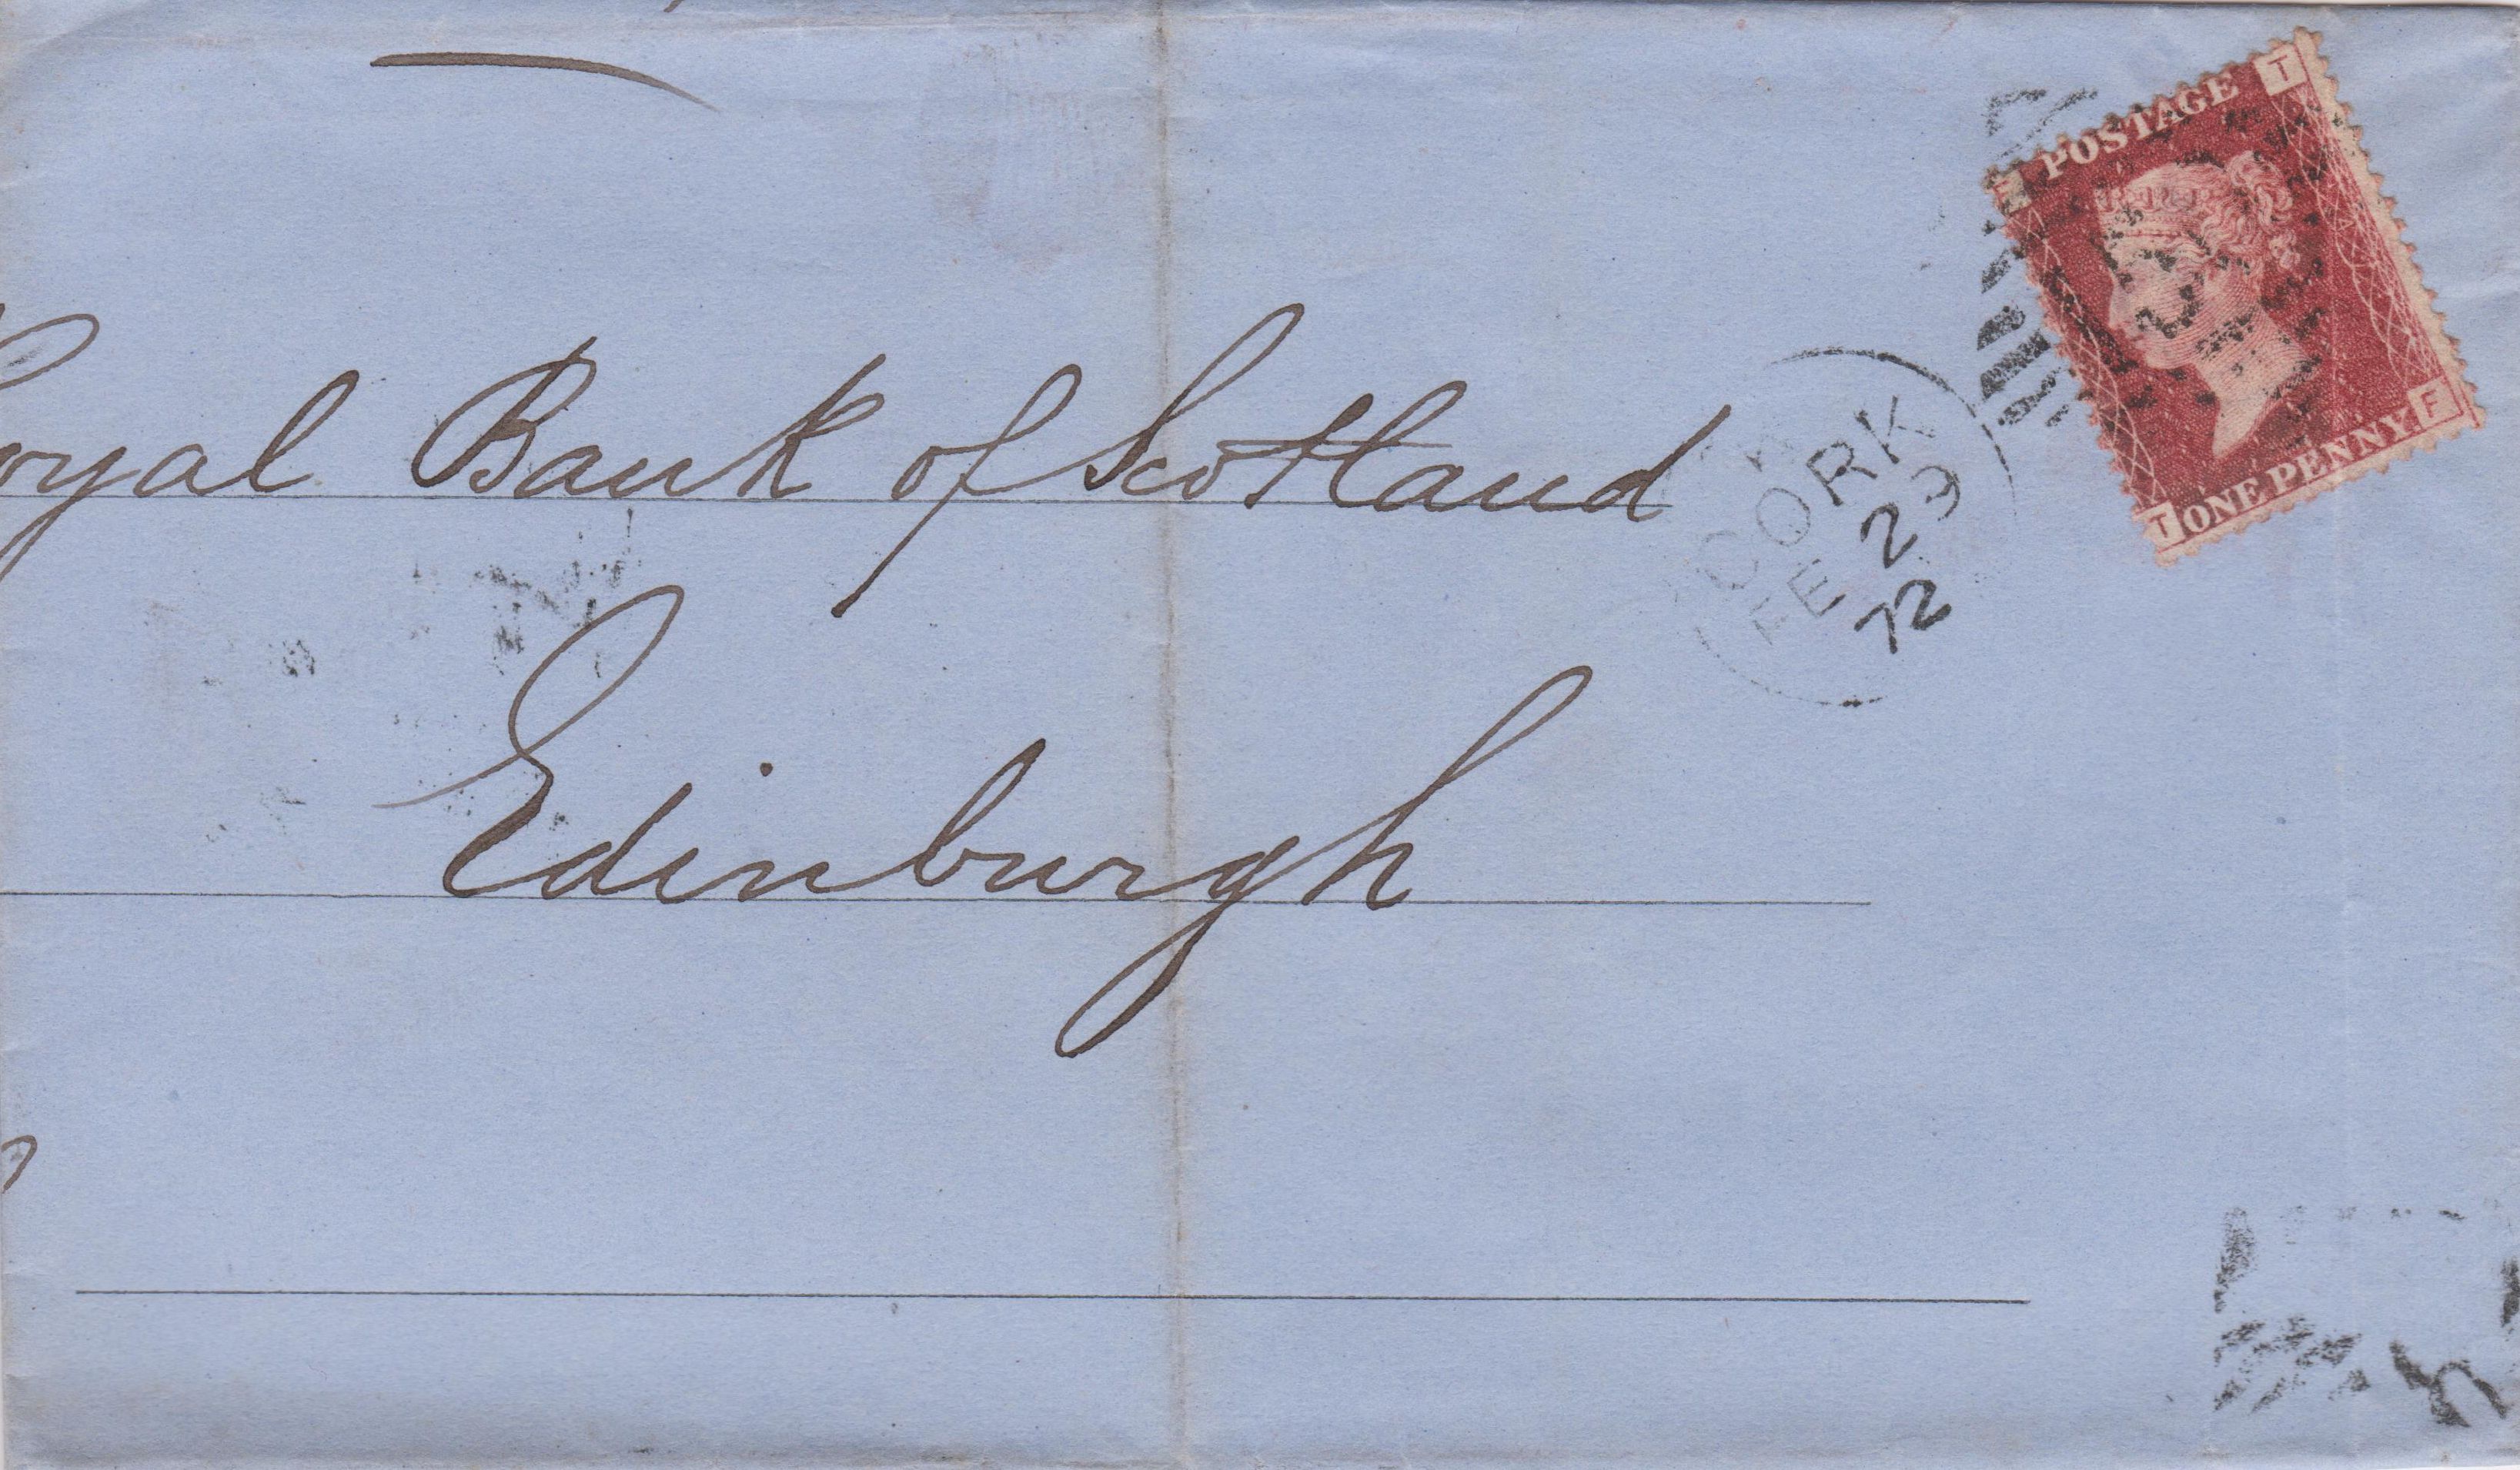 POSTAGE
T
ONE PENNY
T
F
oyal Bank of Scotland
CORK
A
FE 29
72
Edinburgh